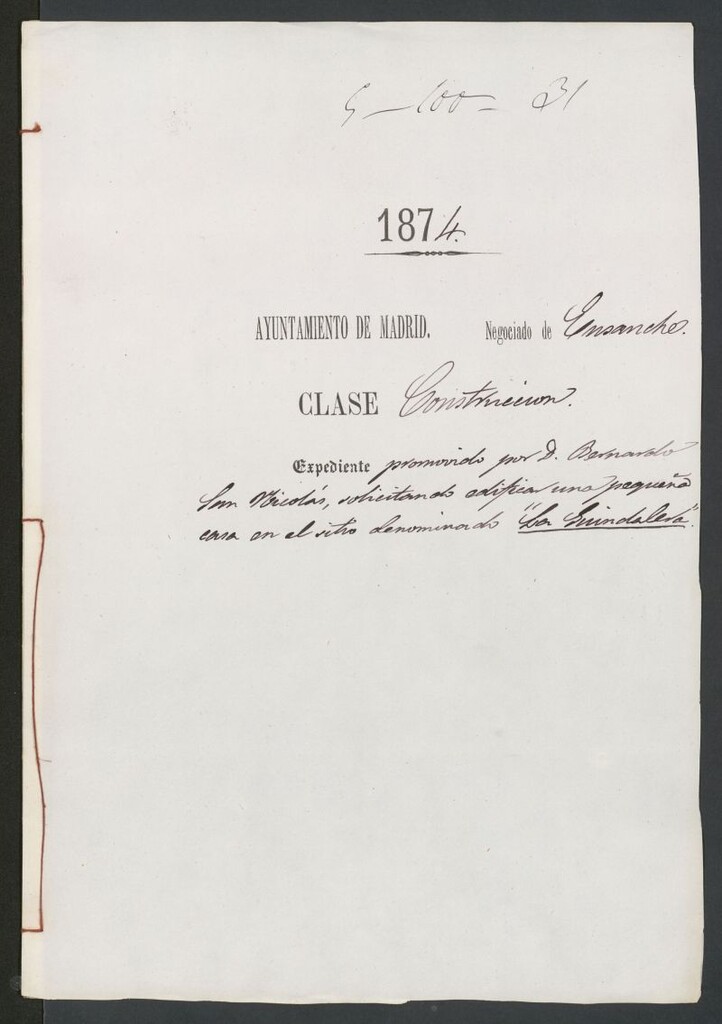 5 - 100 - 31
1874.
AYUNTAMIENTO DE MADRID. Negociado de Ensanche.
CLASE Construccion.
Expediente promovido por D. Bernardo
San Nicolás, solicitando edificar una pequeña
casa en el sitio denominado "La Guindalera".